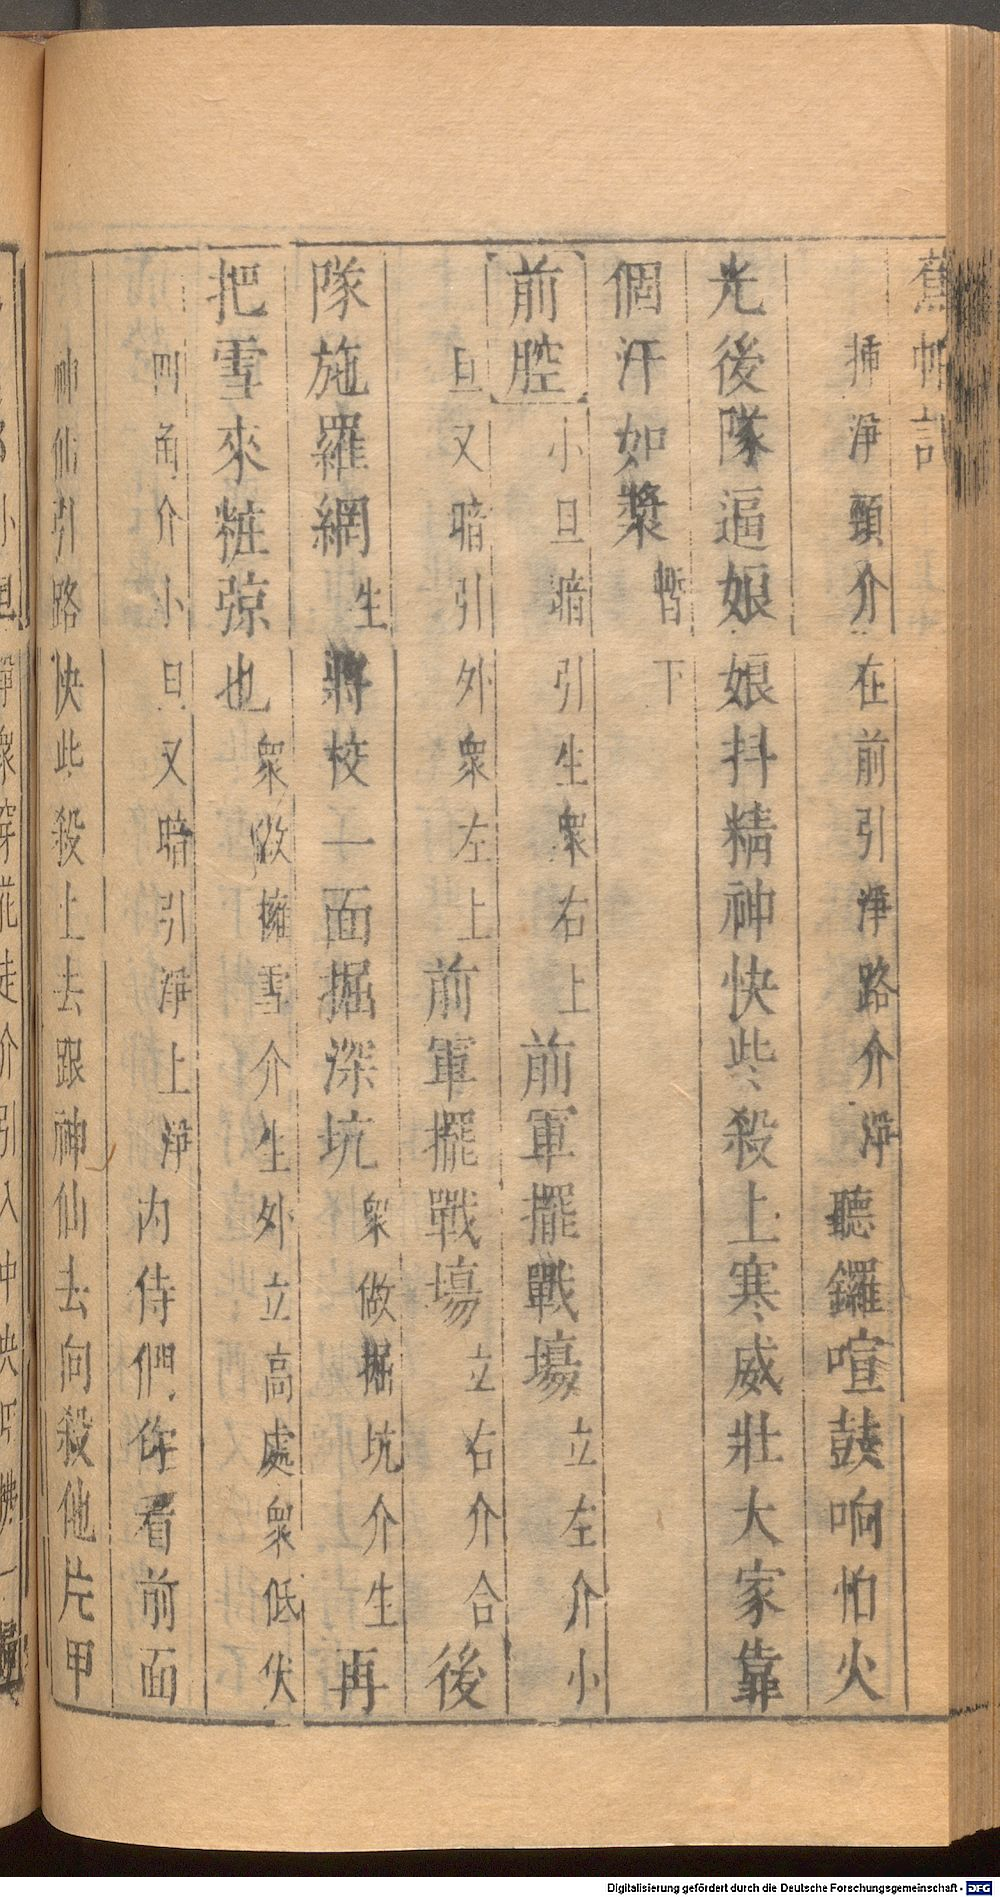 蕉帕記
揷淨頸介在前引淨路介淨聽鑼喧鼓响怕火
光後隊逼娘娘抖精神快些殺上寒威壯大家靠
個汗如漿暫下
前腔小旦暗引生衆右上前軍擺戰塲立左介小
旦又暗引外衆左上前軍擺戰塲立右介合後
隊施羅網生將校一面掘深坑衆做掘坑介生再
把雪來粧弶也衆做擁雪介生外立高處衆低伏
四角介小旦又暗引淨上淨內侍們你看前面
神仙引路快些殺上去跟神仙去向殺他片甲
Digitalisierung gefördert durch die Deutsche Forschungsgemeinschaft - DFG